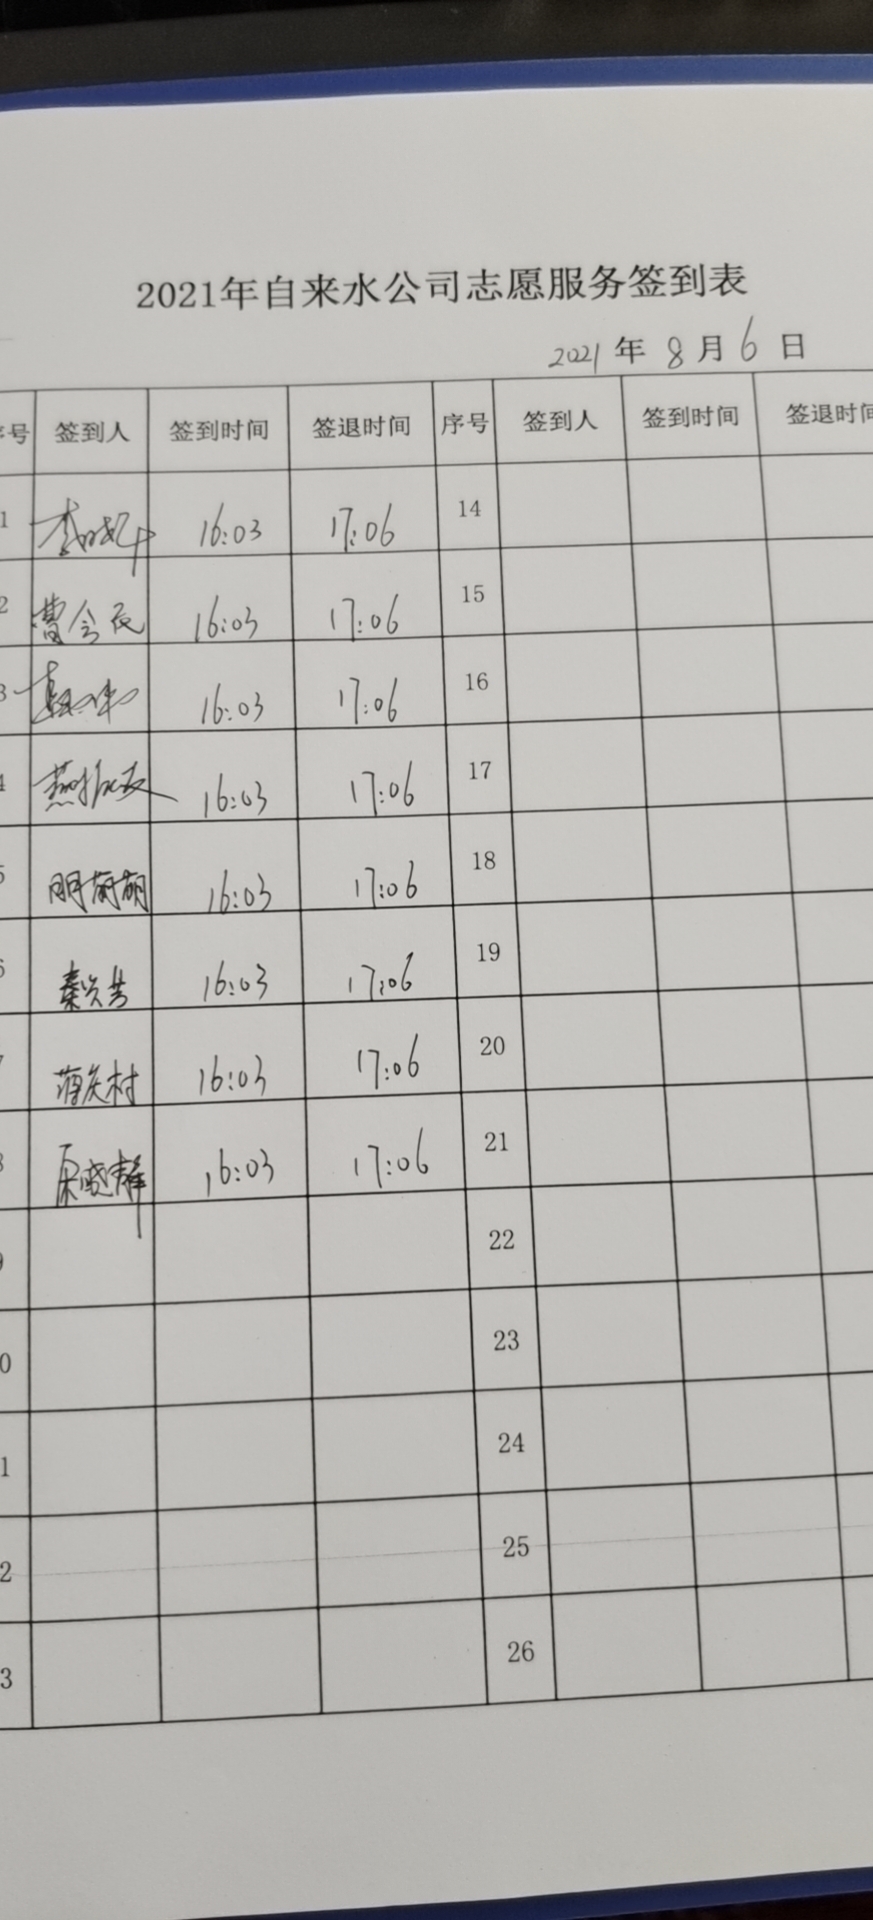 2021年自来水公司志愿服务签到表
2021年8月6日
序号 签到人 签到时间 签退时间 序号 签到人 签到时间 签退时间
1 16:03 17:06 14
2 曹会辰 16:03 17:06 15
3 16:03 17:06 16
4 燕 16:03 17:06 17
5 16:03 17:06 18
6 秦兴芸 16:03 17:06 19
7 16:03 17:06 20
8 晓静 16:03 17:06 21
9 22
0 23
1 24
2 25
3 26